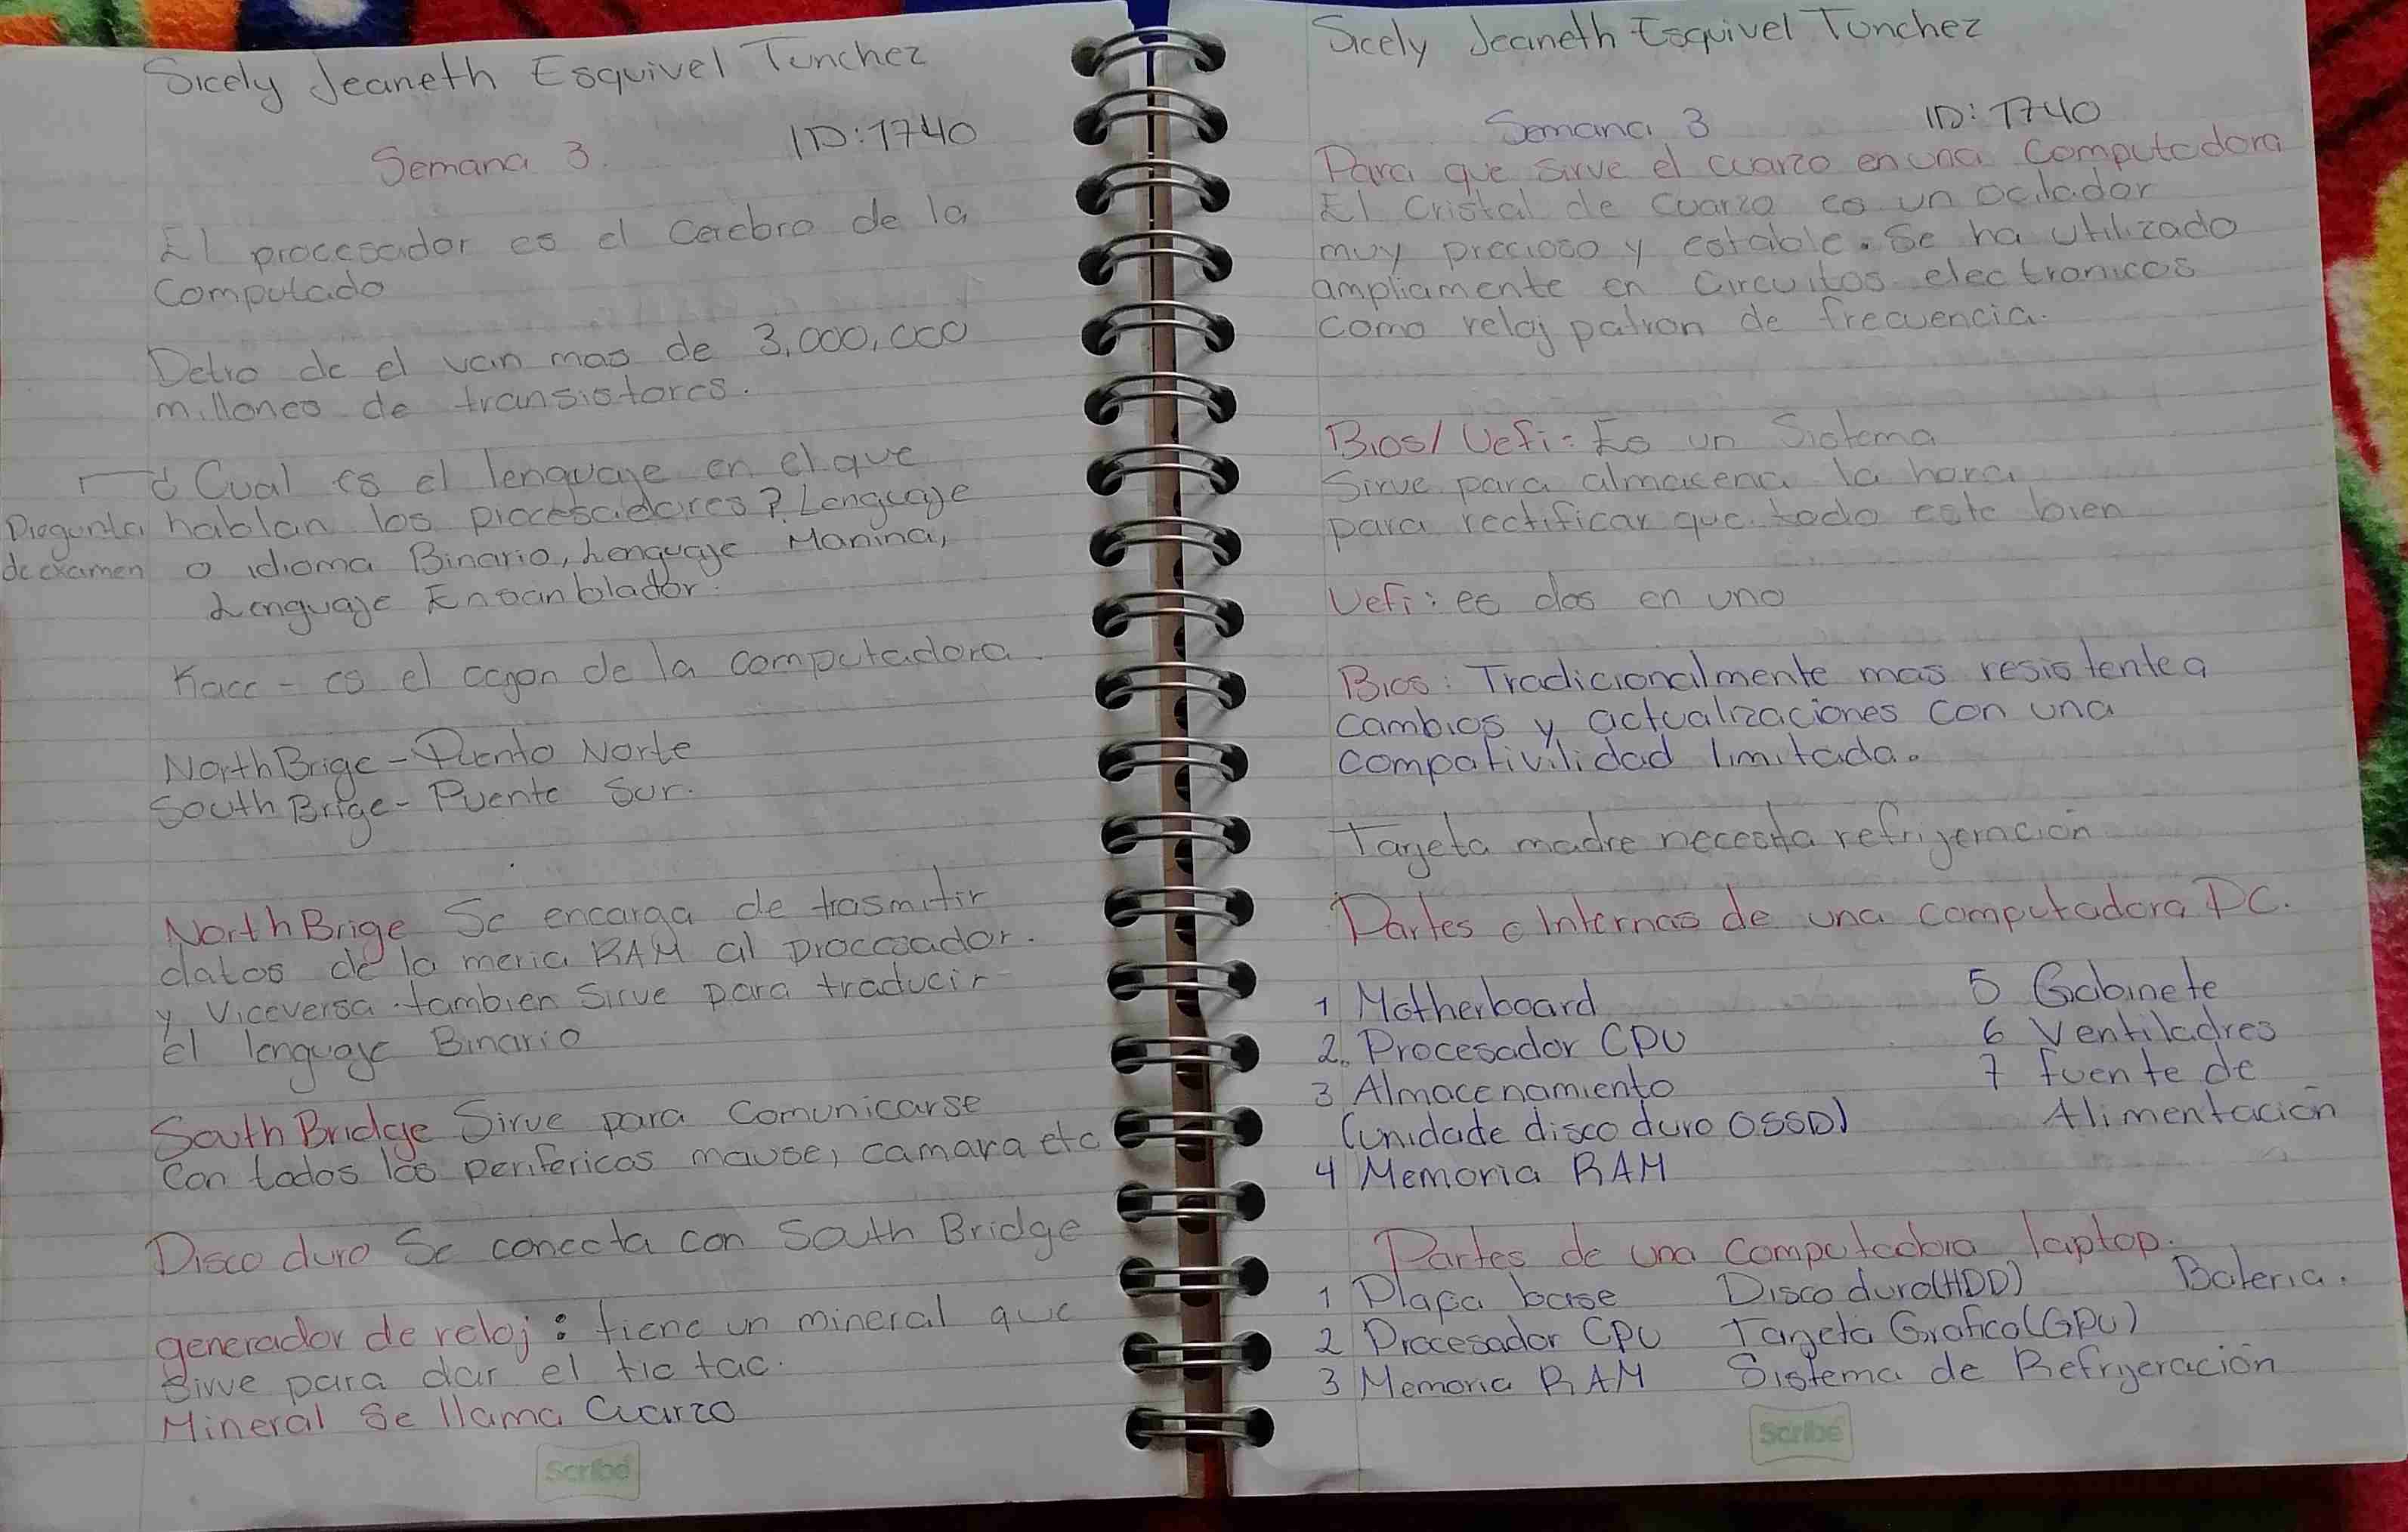 Sicely Jeaneth Esquivel Tunchez
ID:1740
Semana 3.
El procesador es el Cerebro de la
Computado
Detro de el van mas de 3,000,000
millones de transistores.
¿Cual es el lenguaje en el que
hablan los procesadores? Lenguaje
o idioma Binario, Lenguaje Manina,
Lenguaje Ensanblador.
Pregunta
de examen
Kacc - es el cajon de la computadora.
NorthBrige - Puento Norte
South Brige - Puente Sur.
NorthBrige Se encarga de trasmitir
datos de la meria RAM al procesador.
y Viceversa tambien Sirve para traducir
el lenguaje Binario
South Bridge Sirve para Comunicarse
Con todos los perifericos mause, camara etc
Disco duro Se conecta con South Bridge
generador de reloj: tiene un mineral que
Sirve para dar el tic tac.
Mineral Se llama Cuarzo
Scribe
Sicely Jeaneth Esquivel Tunchez
Semana 3
ID: 1740
Para que Sirve el cuarzo en una Computadora
El Cristal de Cuarzo es un ocilador
muy precioso y estable. Se ha utilizado
ampliamente en Circuitos electronicos
Como reloj patron de frecuencia.
Bios/ Uefi: Es un Sistema
Sirve para almacena la hora
para rectificar que todo este bien
Uefi: es dos en uno
Bios: Tradicionalmente mas resistente a
cambios y actualizaciones con una
compativilidad limitada.
Tarjeta madre necesita refrigeración
Partes Internas de una computadora PC.
1 Motherboard
2. Procesador CPU
3 Almacenamiento
(unidade disco duro OSSD)
4 Memoria RAM
5 Gabinete
6 Ventiladres
7 fuente de
Alimentación
Partes de una Computadora laptop.
1 Plapa base Disco duro(HDD) Bateria.
2 Procesador CPU Tarjeta Grafica(GPU)
3 Memoria RAM Sistema de Refrigeración
Scribe